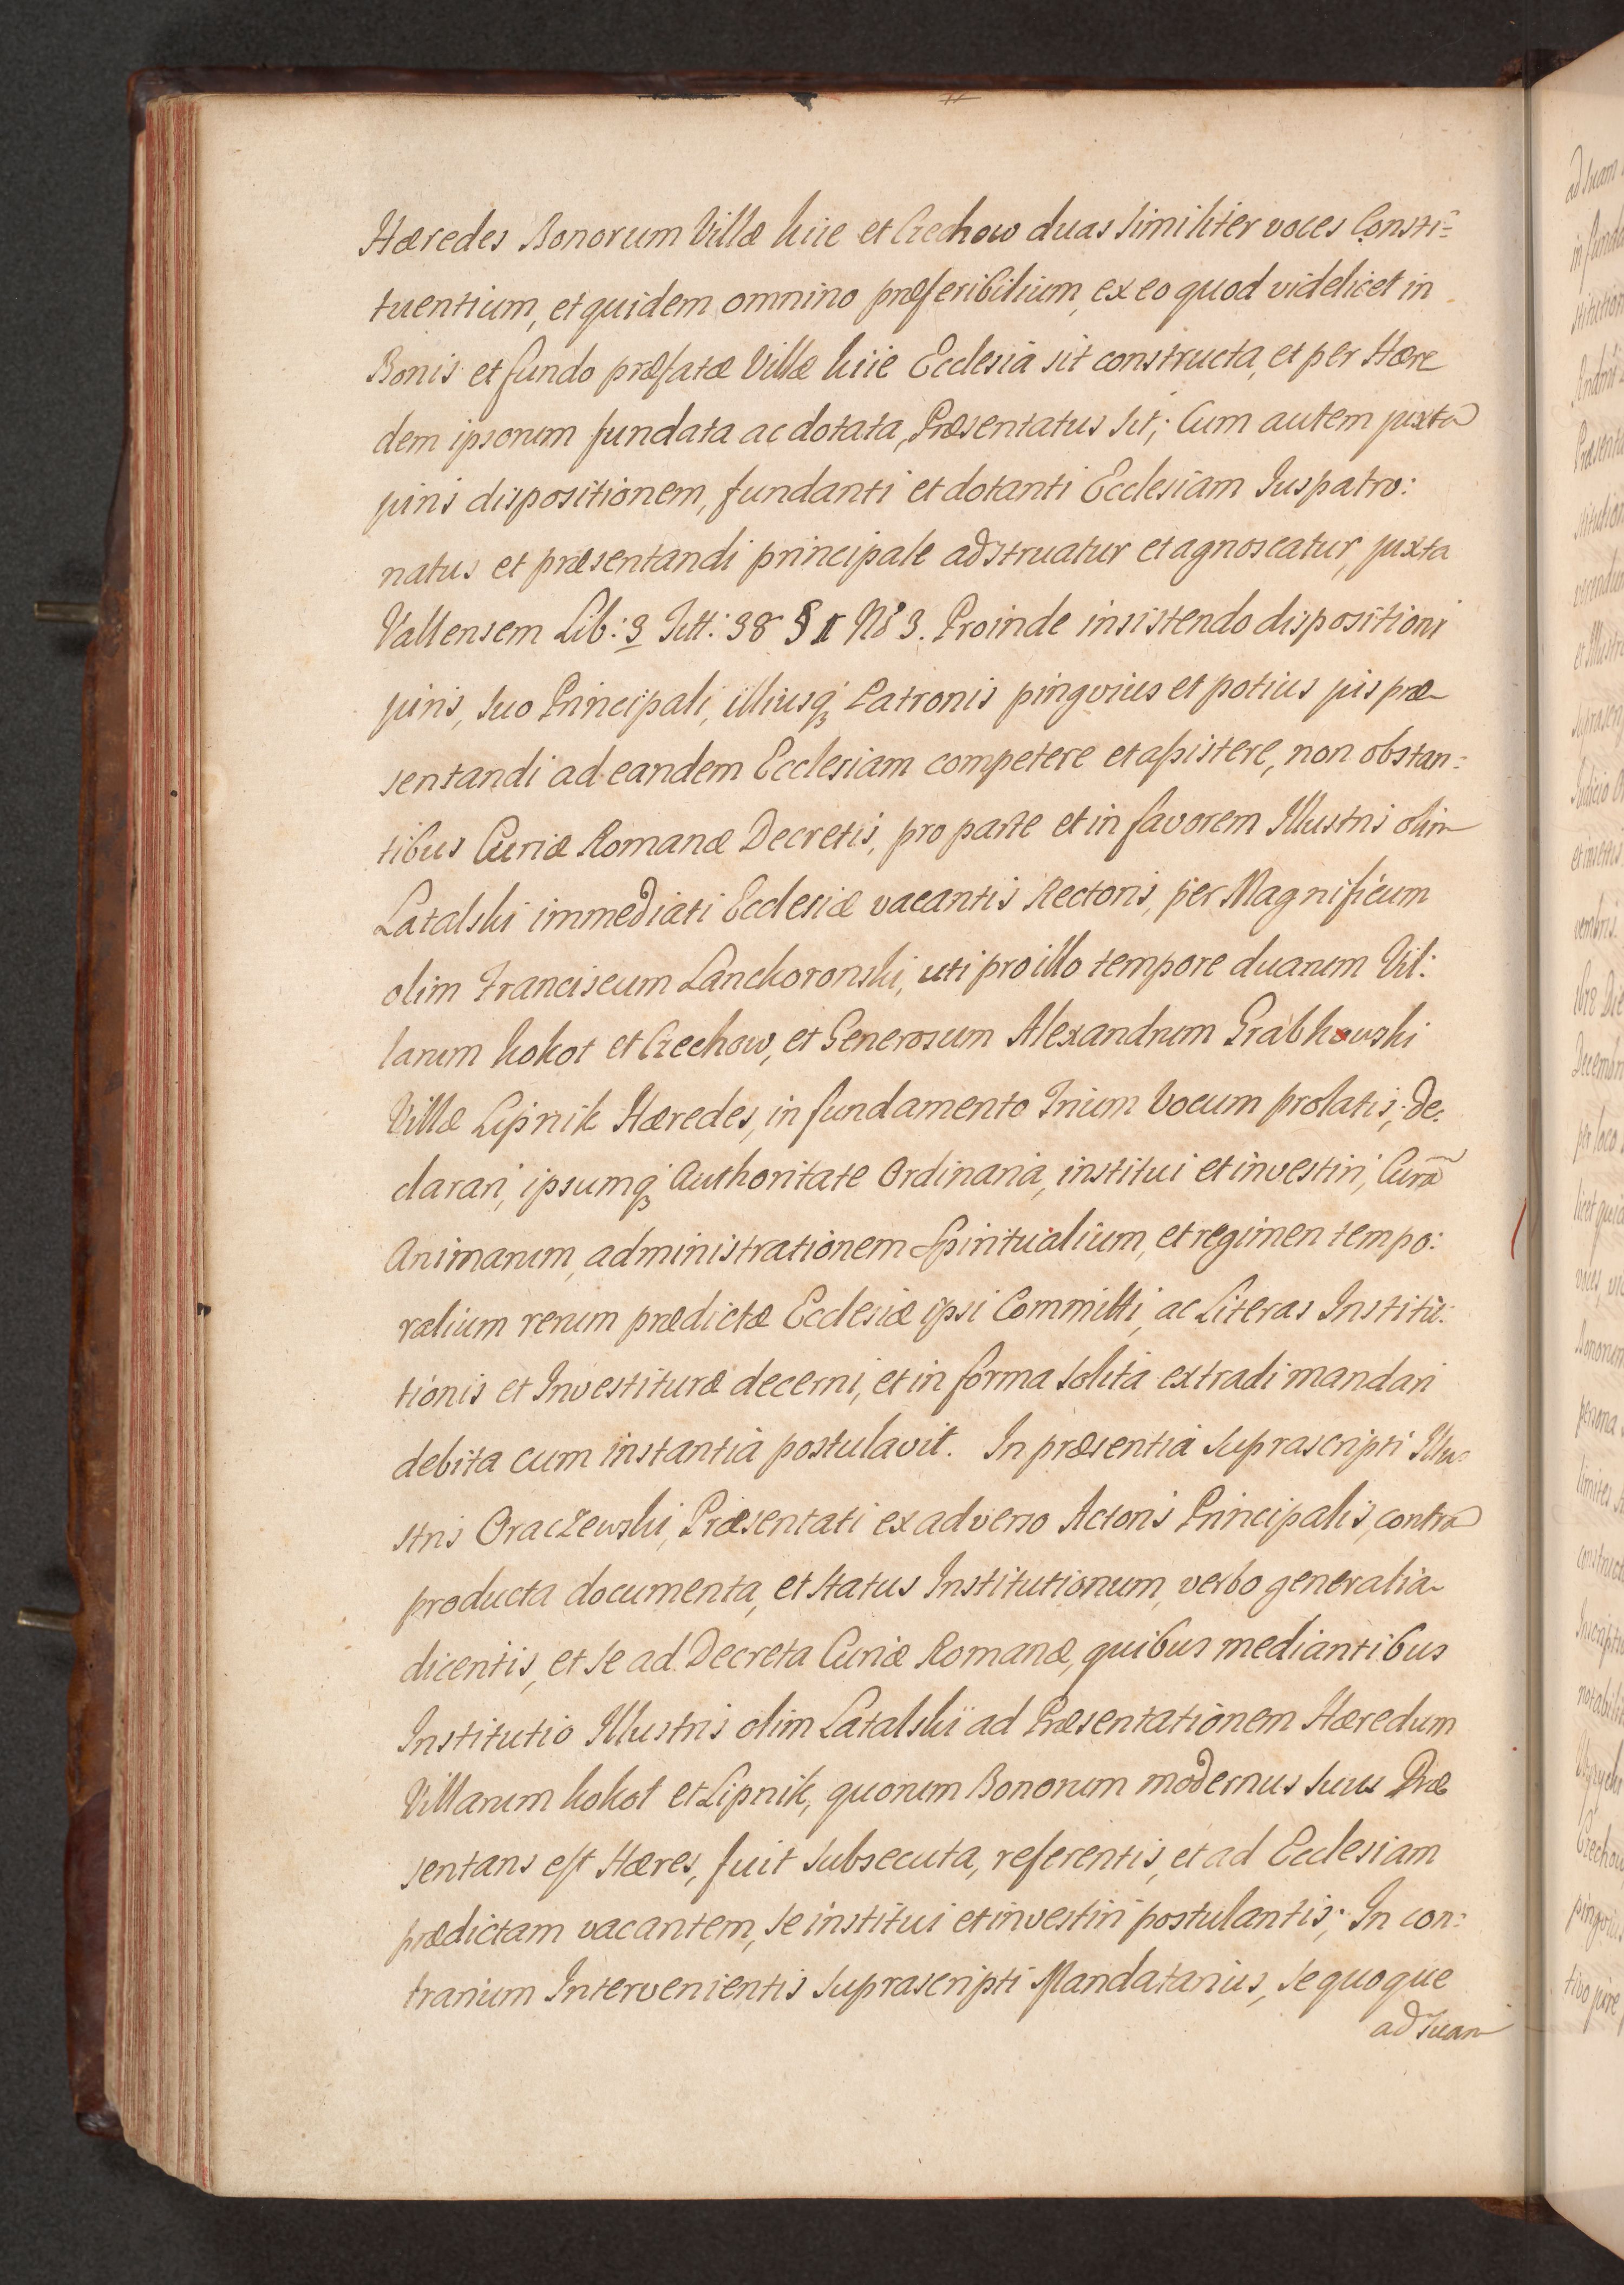 Hæredes Bonorum Villæ Kiie et Czechow duas similiter voces Consti=
tuentium, et quidem omnino præferibilium, ex eo quod videlicet in
Bonis et fundo præfatæ Villæ Kiie Ecclesia sit constructa, et per Hære
dem ipsorum fundata ac dotata, Præsentatus sit; Cum autem juxta
juris dispositionem, fundanti et dotanti Ecclesiam Juspatro:
natus et præsentandi principale adstruatur et agnoscatur, juxta
Vallensem Lib: 3 Titt: 38 § II No 3. Proinde insistendo dispositioni
juris, suo Principali, illiusq; Patronis pingvius et potius jus præ
sentandi ad eandem Ecclesiam competere et assistere, non obstan:
tibus Curiæ Romanæ Decretis, pro parte et in favorem Illustris olim
Latalski immediati Ecclesiæ vacantis Rectoris, per Magnificum
olim Franciscum Lanckoronski, uti pro illo tempore duarum Vil:
larum Kokot et Czechow, et Generosum Alexandrum Grabkowski
Villæ Lipnik Hæredes, in fundamento Trium Vocum prolatis; de:
clarari, ipsumq; Authoritate Ordinaria, institui et investiri, Curã
Animarum, administrationem Spiritualium, et regimen tempo:
ralium rerum prædictæ Ecclesiæ ipsi Committi, ac Literas Institu:
tionis et Investituræ decerni, et in forma solita extradi mandari
debita cum instantia postulavit. In præsentia suprascripti Illu:
stris Oraczewski, Præsentati ex adverso Actoris Principalis, contra
producta documenta, et status Institutionum, verbo generalia
dicentis, et se ad Decreta Curiæ Romanæ, quibus mediantibus
Institutio Illustris olim Latalskii ad Præsentationem Hæredum
Villarum Kokot et Lipnik, quorum Bonorum modernus suus Præ
sentans est Hæres, fuit subsecuta, referentis, et ad Ecclesiam
prædictam vacantem, se institui et investiri postulantis; In con:
trarium Intervenientis suprascripti Mandatarius, se quoque
ad suam